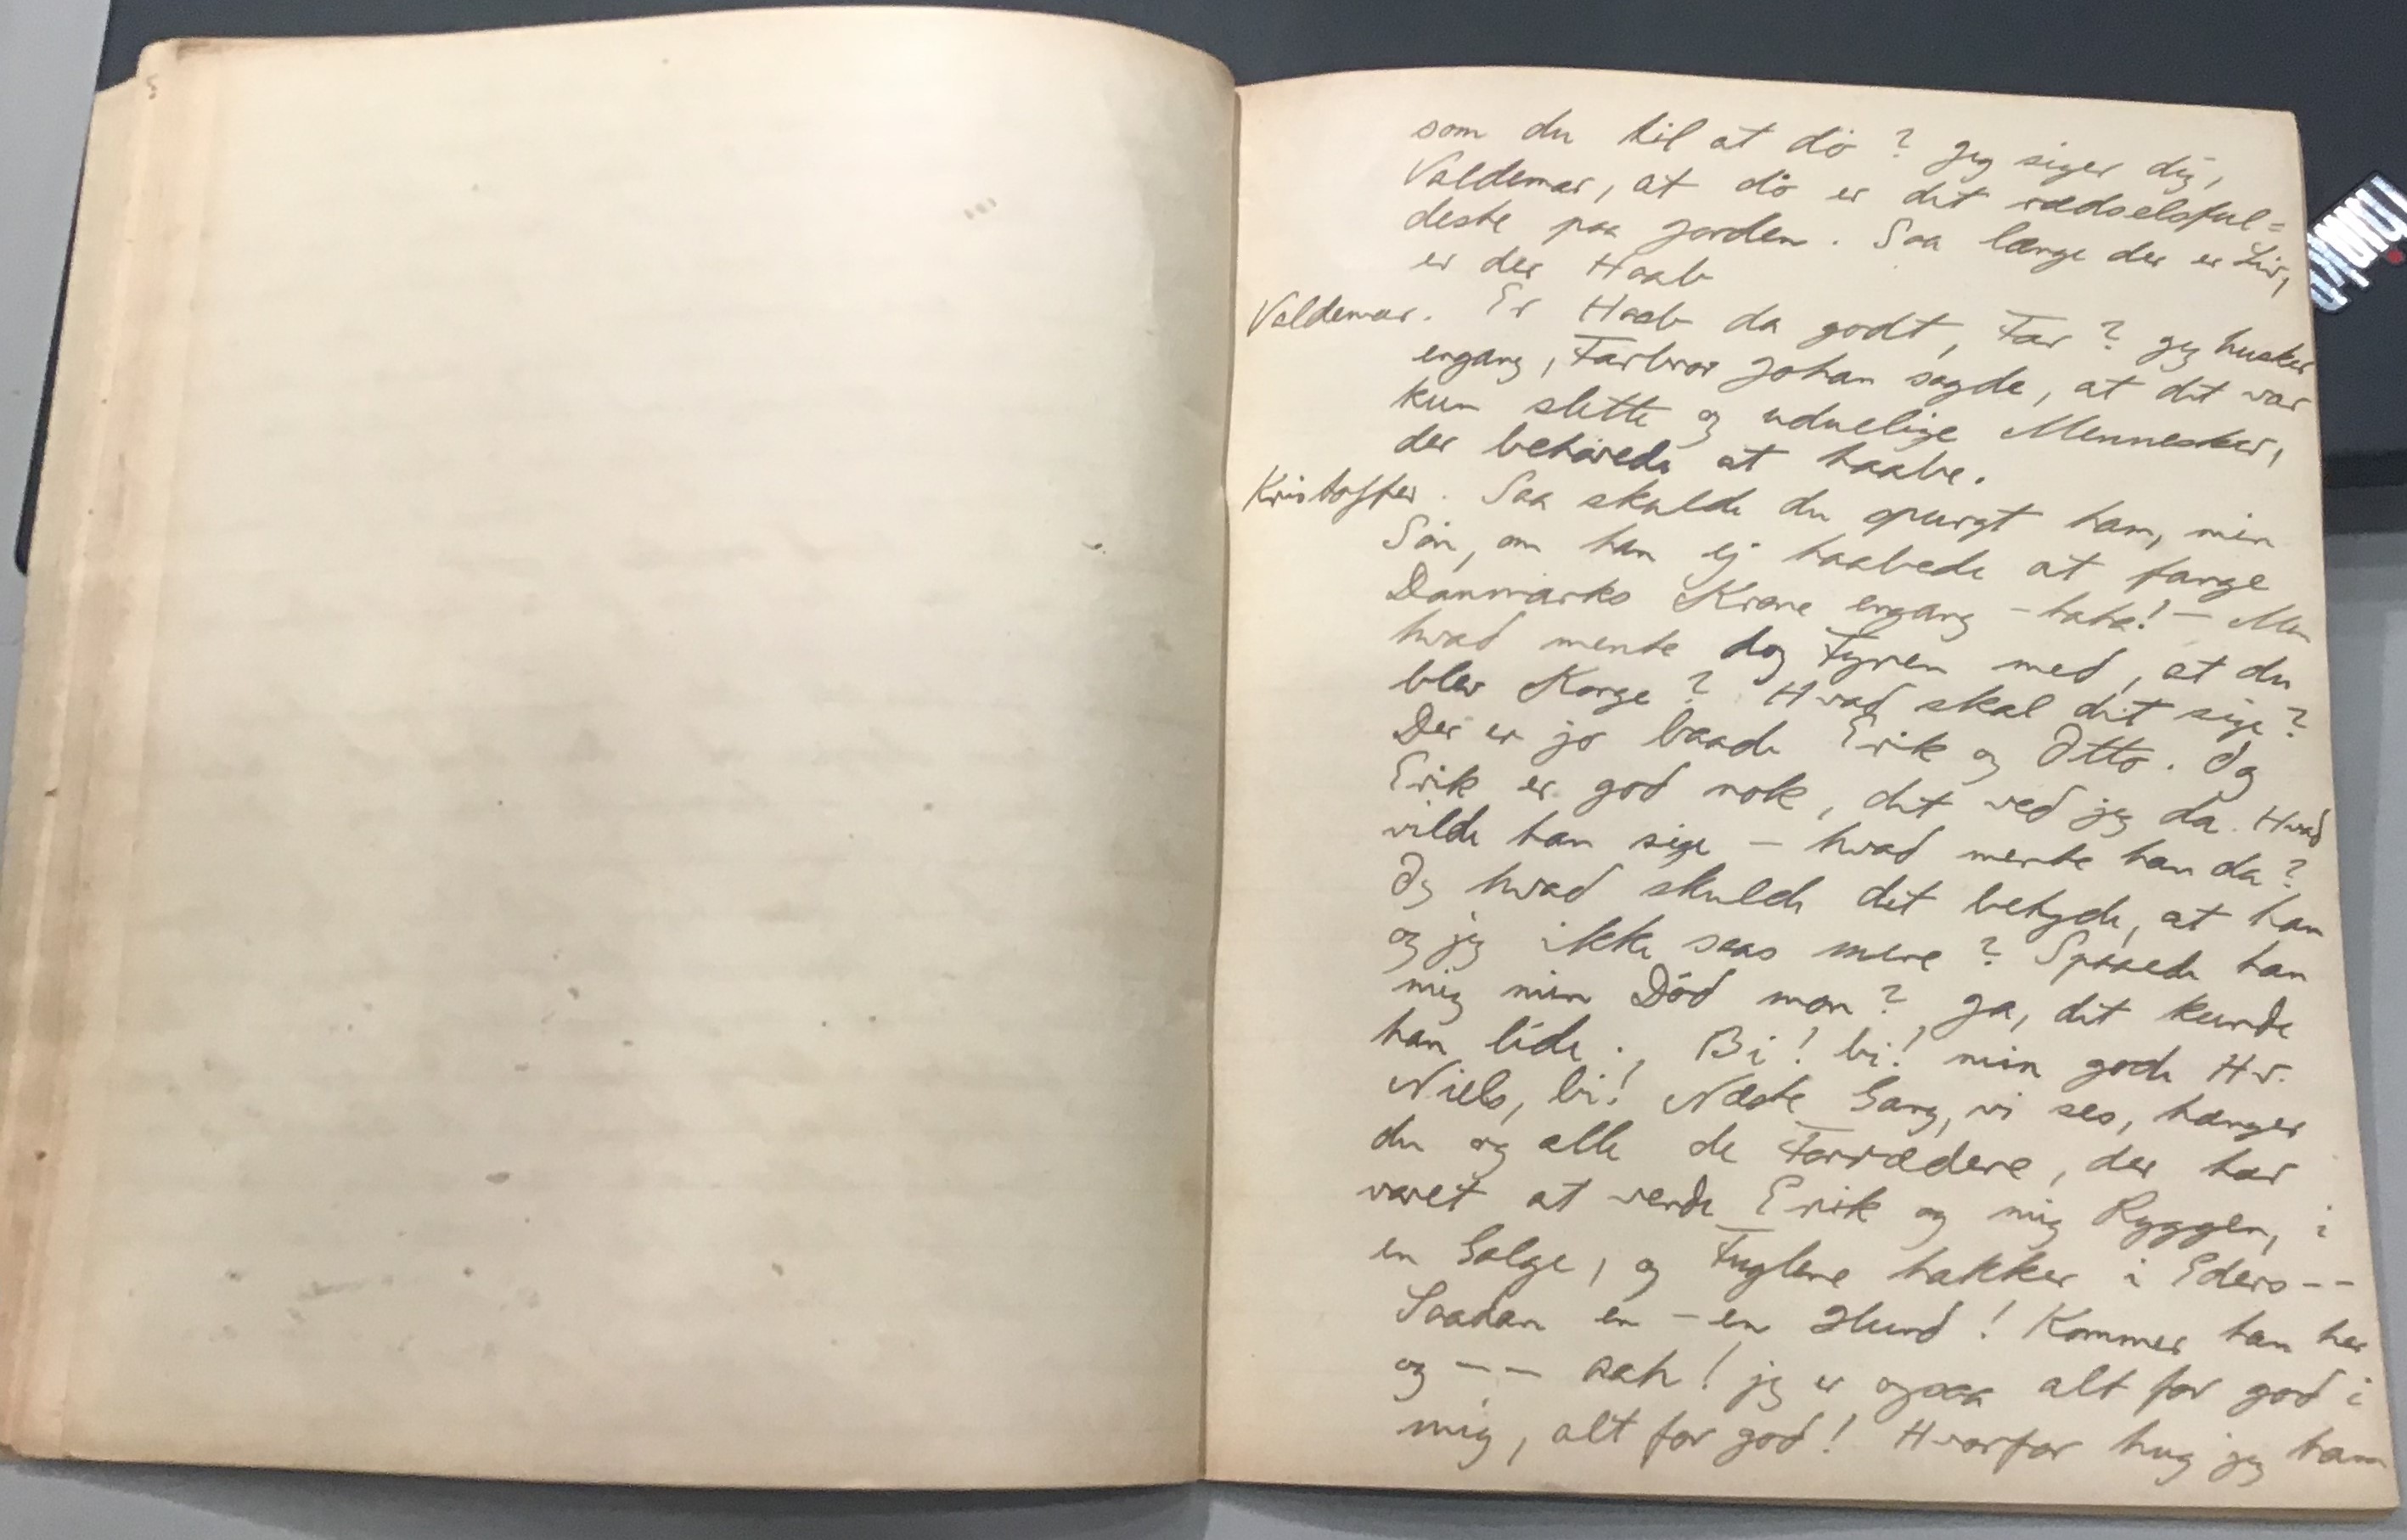 som du til at dö? Jeg siger dig,
Valdemar, at dö er det rædselsful=
deste paa Jorden. Saa længe der er Liv,
er der Haab
Valdemar. Er Haab da godt, Far? Jeg husker
engang, Farbror Johan sagde, at det var
kun slette og uduelige Mennesker,
der behövede at haabe.
Kristoffer. Saa skulde du spurgt ham, min
Sön, om han ej haabede at fange
Danmarks Krone engang - haha! - Men
hvad mente dog Fyren med, at du
blev Konge? Hvad skal det sige?
Der er jo baade Erik og Otto. Og
Erik er god nok, det ved jeg da. Hvad
vilde han sige - hvad mente han da?
Og hvad skulde det betyde, at han
og jeg ikke saas mere? Spaaede han
mig min Död mon? Ja, det kunde
han lide. Bi! bi! min gode Hr.
Niels, bi! Næste Gang, vi ses, hænger
du og alle de Forrædere, der har
været at vende Erik og mig Ryggen, i
en Galge, og Fuglene hakker i Eders --
Saadan en - en Hund! Kommer han her
og -- aah! jeg er ogsaa alt for god i
mig, alt for god! Hvorfor hug jeg ham